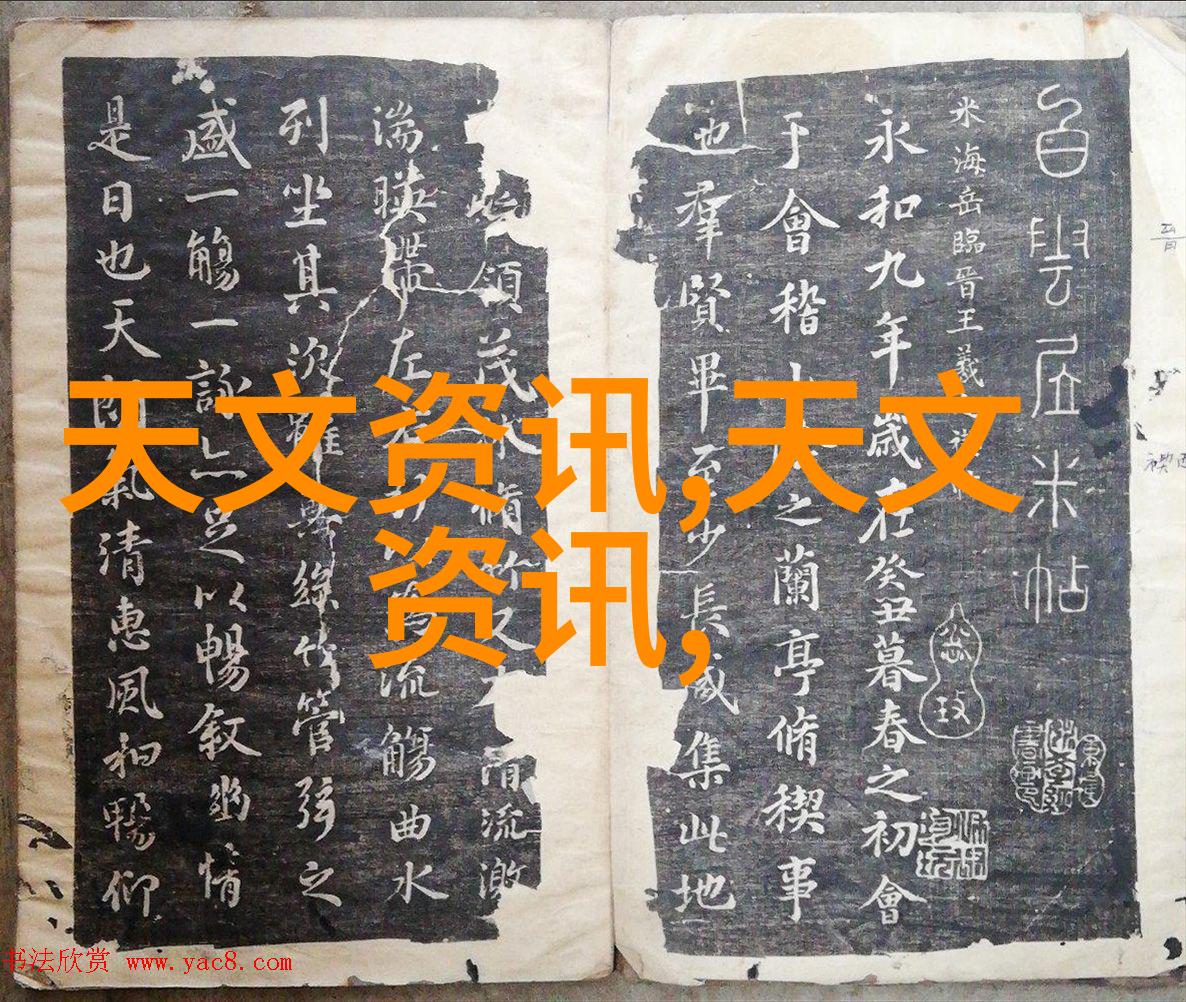 自雲居米帖
米海岳臨晉王羲
永和九年歲在癸丑暮春之初會
于會稽山之蘭亭脩稧事
也羣賢畢至少長咸集此地
領茂林脩竹又清流激
湍暎帶左右引以為流觴曲水
列坐其次雖無絲竹管弦之
盛一觴一詠亦足以暢敘幽情
是日也天朗氣清惠風和暢仰
天文资讯,天文
资讯,
书法欣赏 www.yac8.com